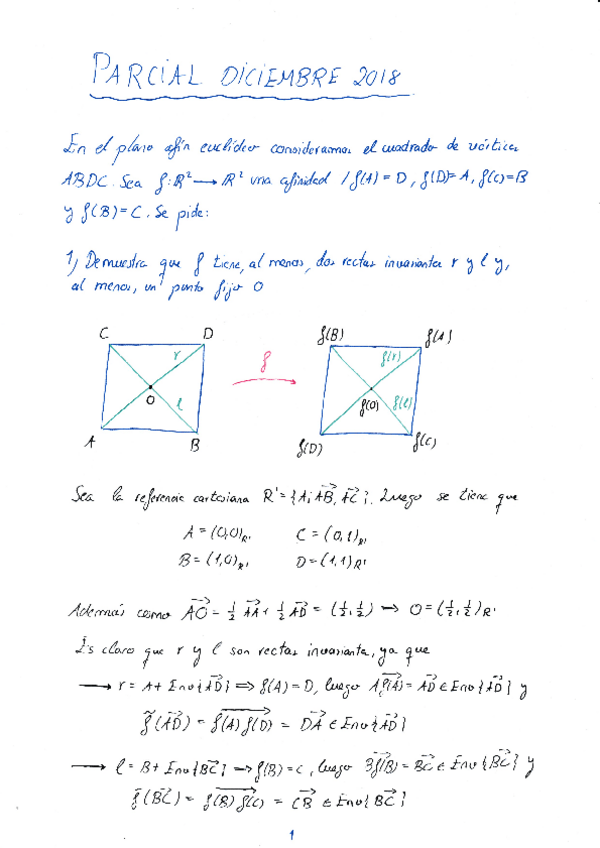 PARCIAL DICIEMBRE 2018
En el plano afín euclídeo consideramos el cuadrado de vértices
ABDC. Sea f: ℝ² → ℝ² una afinidad / f(A) = D, f(D) = A, f(C) = B
y f(B) = C. Se pide:
1) Demuestra que f tiene, al menos, dos rectas invariantes r y l y,
al menos, un punto fijo O
C D f(B) f(A)
r f f(r)
O l f(O) f(l)
A B f(D) f(C)
Sea la referencia cartesiana R' = {A; AB⃗, AC⃗}. Luego se tiene que
A = (0,0)R' C = (0,1)R'
B = (1,0)R' D = (1,1)R'
Además como AO⃗ = 1/2 AA⃗ + 1/2 AD⃗ = (1/2, 1/2) → O = (1/2, 1/2)R'
Es claro que r y l son rectas invariantes, ya que
→ r = A + Env{AD⃗} ⇒ f(A) = D, luego Af(A)⃗ = AD⃗ ∈ Env{AD⃗} y
f⃗(AD⃗) = f(A)f(D)⃗ = DA⃗ ∈ Env{AD⃗}
→ l = B + Env{BC⃗} ⇒ f(B) = C, luego Bf(B)⃗ = BC⃗ ∈ Env{BC⃗} y
f⃗(BC⃗) = f(B)f(C)⃗ = CB⃗ ∈ Env{BC⃗}
1